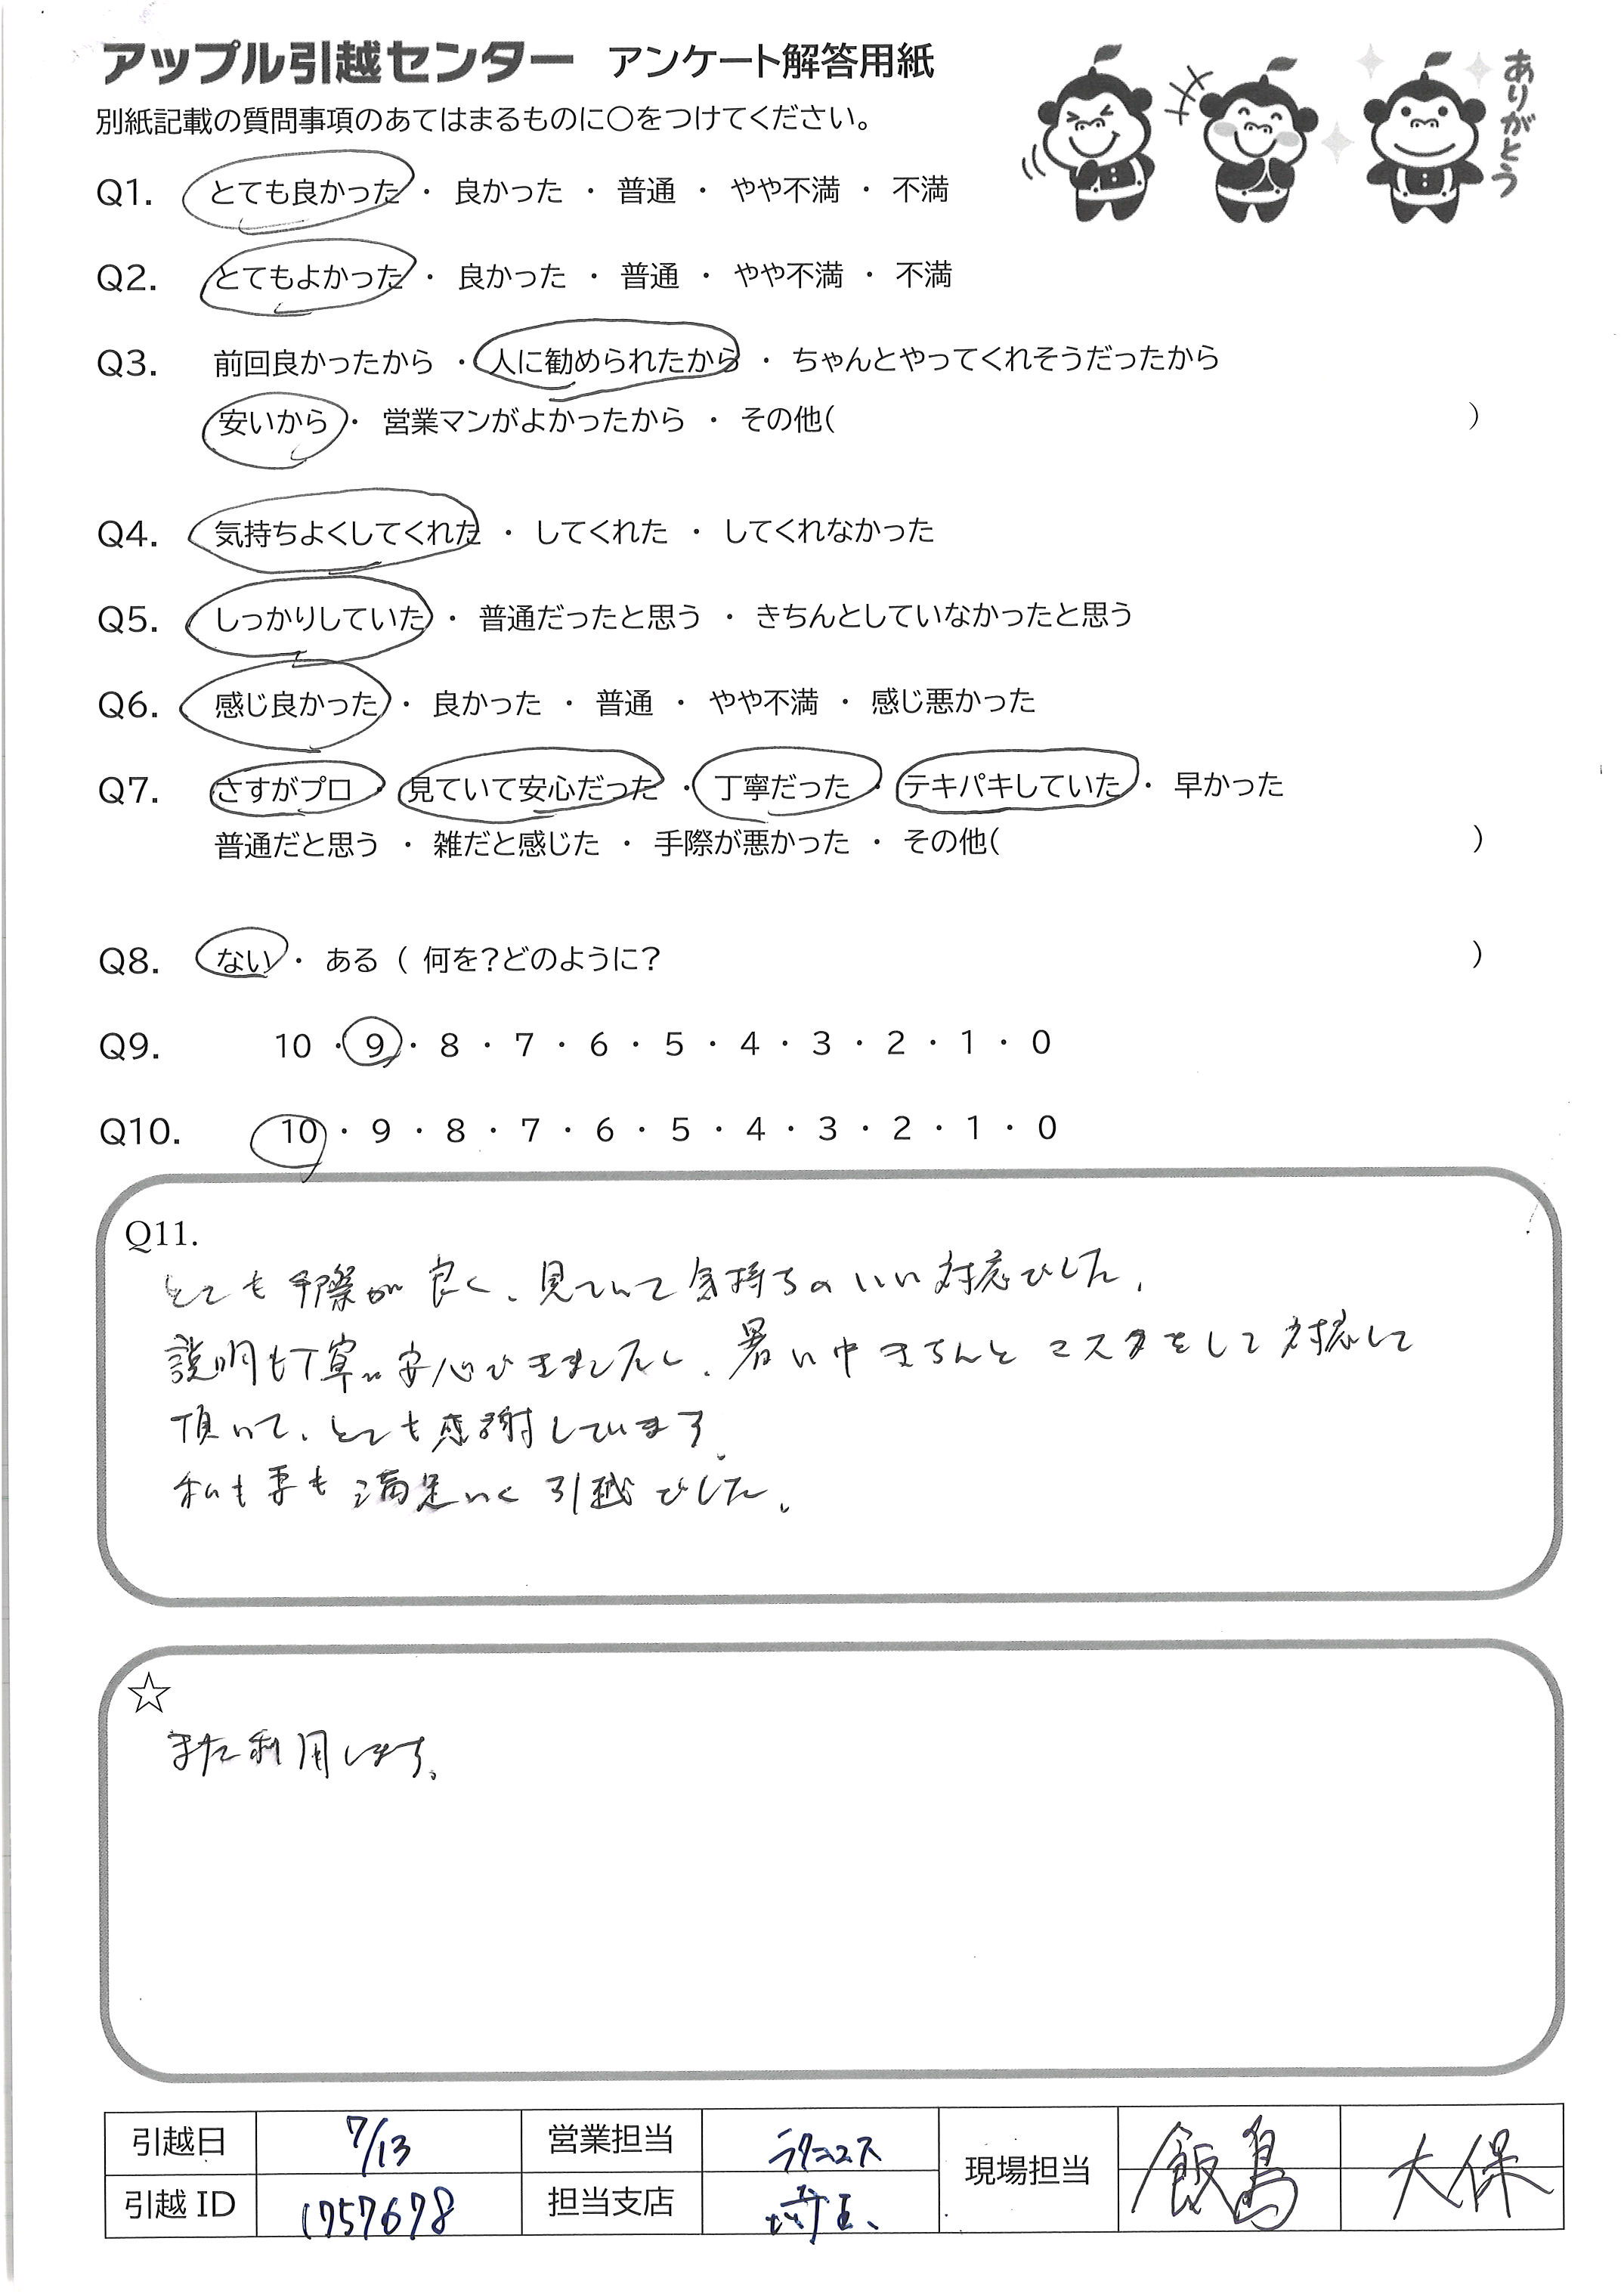 アップル引越センター アンケート解答用紙
ありがとう
別紙記載の質問事項のあてはまるものに○をつけてください。
Q1. とても良かった ・ 良かった ・ 普通 ・ やや不満 ・ 不満
Q2. とてもよかった ・ 良かった ・ 普通 ・ やや不満 ・ 不満
Q3. 前回良かったから ・ 人に勧められたから ・ ちゃんとやってくれそうだったから
安いから ・ 営業マンがよかったから ・ その他( )
Q4. 気持ちよくしてくれた ・ してくれた ・ してくれなかった
Q5. しっかりしていた ・ 普通だったと思う ・ きちんとしていなかったと思う
Q6. 感じ良かった ・ 良かった ・ 普通 ・ やや不満 ・ 感じ悪かった
Q7. さすがプロ ・ 見ていて安心だった ・ 丁寧だった ・ テキパキしていた ・ 早かった
普通だと思う ・ 雑だと感じた ・ 手際が悪かった ・ その他( )
Q8. ない ・ ある ( 何を?どのように? )
Q9. 10 ・ 9 ・ 8 ・ 7 ・ 6 ・ 5 ・ 4 ・ 3 ・ 2 ・ 1 ・ 0
Q10. 10 ・ 9 ・ 8 ・ 7 ・ 6 ・ 5 ・ 4 ・ 3 ・ 2 ・ 1 ・ 0
Q11.
とても手際が良く、見ていて気持ちのいい対応でした。
説明も丁寧で安心できましたし、暑い中きちんとマスクをして対応して
頂いて、とても感謝しています。
私も妻も満足いく引越でした。
☆
また利用します。
引越日 7/13 営業担当 現場担当 飯島 大保
引越ID 1757678 担当支店 埼玉